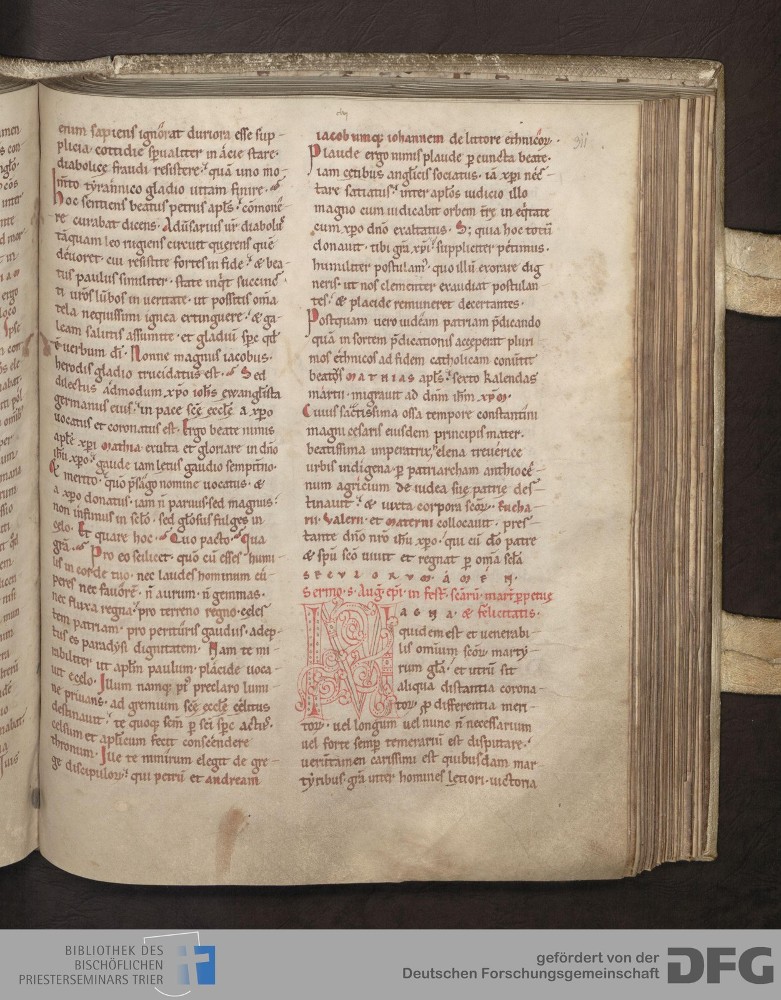 enim sapiens ignorat duriora esse sup-
plicia cottidie sp̄ualiter in acie stare·
diabolicę fraudi resistere· quā uno mo-
m̄to tyrannico gladio uitam finire·
hoc sentiens beatus petrus apl̄s· cōmone-
re curabat dicens· Aduersarius ur̄ diabolus
tāquam leo rugiens circuit querens quē
deuoret· cui resistite fortes in fide· & bea-
tus paulus similiter· state inqt succincti
lūbos in ueritate· ut possitis om̄a
tela nequissimi ignea extinguere· & ga-
leam salutis assumite· et gladiū sp̄c qd
ē uerbum dī· Nonne magnus iacobus·
herodis gladio trucidatus est· Sed
dilectus admodum xp̄o ioh̄s ewanglista
germanus eius· in pace scę ecclę a xp̄o
uocatus et coronatus est· Ergo beate nimis
apl̄e xp̄i mathia exulta et gloriare in dn̄o
ih̄u xp̄o· gaude iam letus gaudio sempit̄no·
& merito· quo p̄sago nomine uocatus· &
a xp̄o donatus· iam n̄ paruus· sed magnus·
non infimus in sclō· sed gl̄osus fulges in
cęlo· Et quare hoc· Quo pacto· Qua
gr̄a· Pro eo scilicet· quō cū esses humi-
lis in corde tuo· nec laudes hominum cu-
peres nec fauorē· n̄ aurum· n̄ gemmas·
nec fluxa regna· pro terreno regno· cęles
tem patriam· pro perituris gaudiis· adep-
tus es paradysi dignitatem· Nam te mi-
rabiliter ut aplm paulum· placide uoca-
uit ę cęlo· Illum namq; preclaro lumi-
ne priuans· ad gremium scę ecclę cęlitus
destinauit· te quoq; sem̄ p̄ sci sp̄c actus·
celsum et aplicum fecit conscendere
thronum· Iure te nimirum elegit de gre-
ge discipulorum· qui petrū et andream
iacobumq; iohannem de littore ethnicor·
Plaude ergo nimis plaude p̄ cuncta beate·
iam cętibus anglicis sociatus· iā xp̄i nec-
tare satiatus· inter aplos iudicio illo
magno cum iudicabit orbem tr̄ę in eqtate
cum xp̄o dn̄o exaltatus· S; quia hoc totū
donauit· tibi gr̄a xp̄i· suppliciter petimus·
humiliter postulam· quo illū exorare dig
neris· ut nos clementer exaudiat postulan
tes· & placide remuneret decertantes·
Postquam uero iudeam patriam p̄dicando
quā in sortem p̄dicationis acceperat pluri
mos ethnicos ad fidem catholicam conūtit
beatus MATHIAS apl̄s· sexto kalendas
martii· migrauit ad dn̄m ih̄m xp̄m·
Cuius sanctissima ossa tempore constantini
magni cesaris eiusdem principis mater·
beatissima imperatrix· elena treuericę
urbis indigena· p̄ patriarcham anthiocē-
num agricium de iudea suę patrię des-
tinauit· & iuxta corpora scōr· Eucha-
rii· Valerii· et Materni collocauit· pres-
tante dn̄o nr̄o ih̄u xp̄o· qui cū dō patre
& spū scō uiuit et regnat p̄ om̄a scla
SECULORUM AMEN·
Sermo s· Aug· ep̄i· in fest· scarū mart· p̄petuę
MAGNA· & felicitatis·
quidem est et uenerabi-
lis omnium scōr· marty-
rum gl̄a· et utrū sit
aliqua distantia corona-
tor· p̄ differentia meri-
tor· uel longum uel nunc n̄ necessarium
uel forte semp̄ temerariū est disputare·
ueruntamen carissimi est quibusdam mar-
tyribus· gr̄a inter homines letior· uictoria
BIBLIOTHEK DES
BISCHÖFLICHEN
PRIESTERSEMINARS TRIER
gefördert von der
Deutschen Forschungsgemeinschaft
DFG